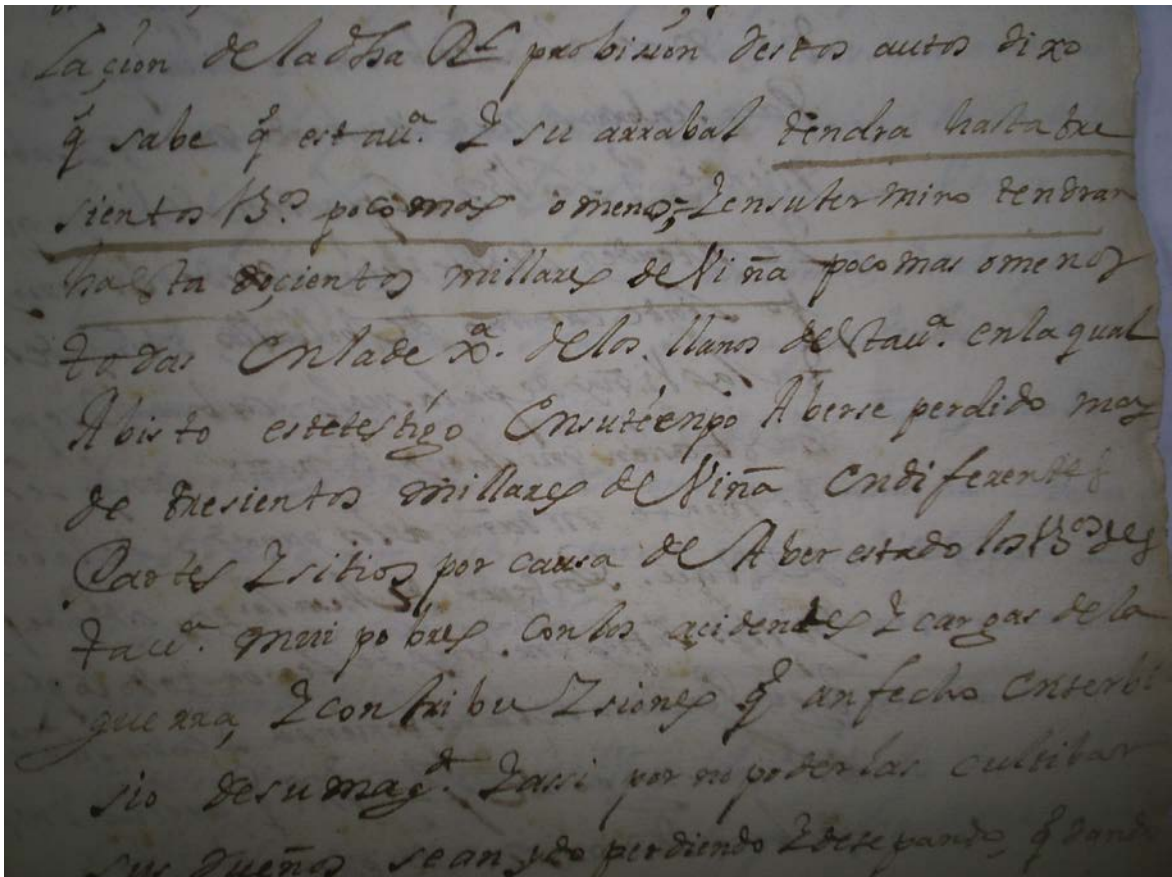 laçion de la dha Rl probision destos autos dixo
q̃ sabe q̃ esta uᵃ. y su arrabal tendra hasta tre
sientos bᵒˢ poco mas o menos, y en su termino tendran
hasta doçientos millares de Viña poco mas o menos
todas en la de xᵃ. de los llanos desta uᵃ. en la qual
A bisto este testigo en su tienpo Aberse perdido mas
de tresientos millares de Viña en diferentes
Partes y sitios por causa de Aber estado los bᵒˢ des
ta uᵃ. mui pobres con los açidentes y cargas de la
guerra, y contribuysiones q̃ an fecho en serbi
sio de su magᵈ. y assi por no poderlas cultibar
sus dueños se an ydo perdiendo y desepando, q̃dando